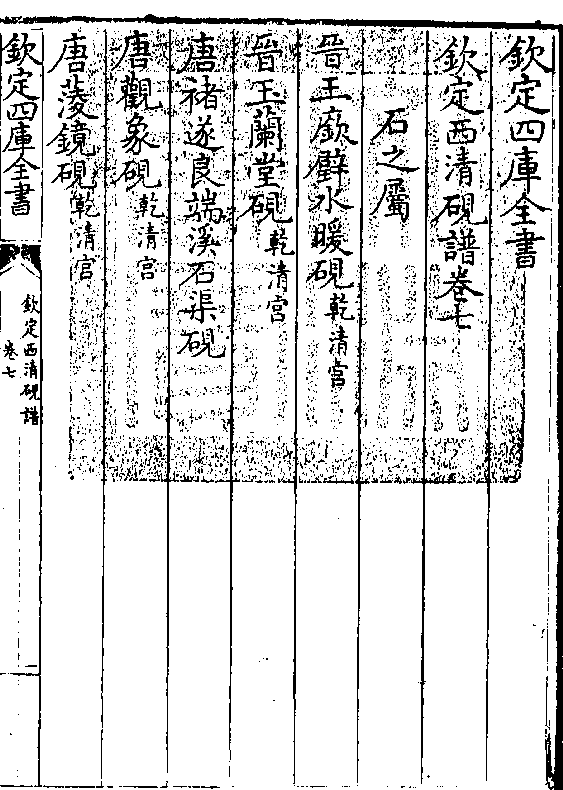 欽定四庫全書
欽定西清硯譜卷七
石之屬
晉王廞璧水暖硯乾清宫
晉玉蘭堂硯乾清宫
唐褚遂良端溪石渠硯
唐觀象硯乾清宫
唐菱鏡硯乾清宫
欽定四庫全書
欽定西清硯譜
卷七